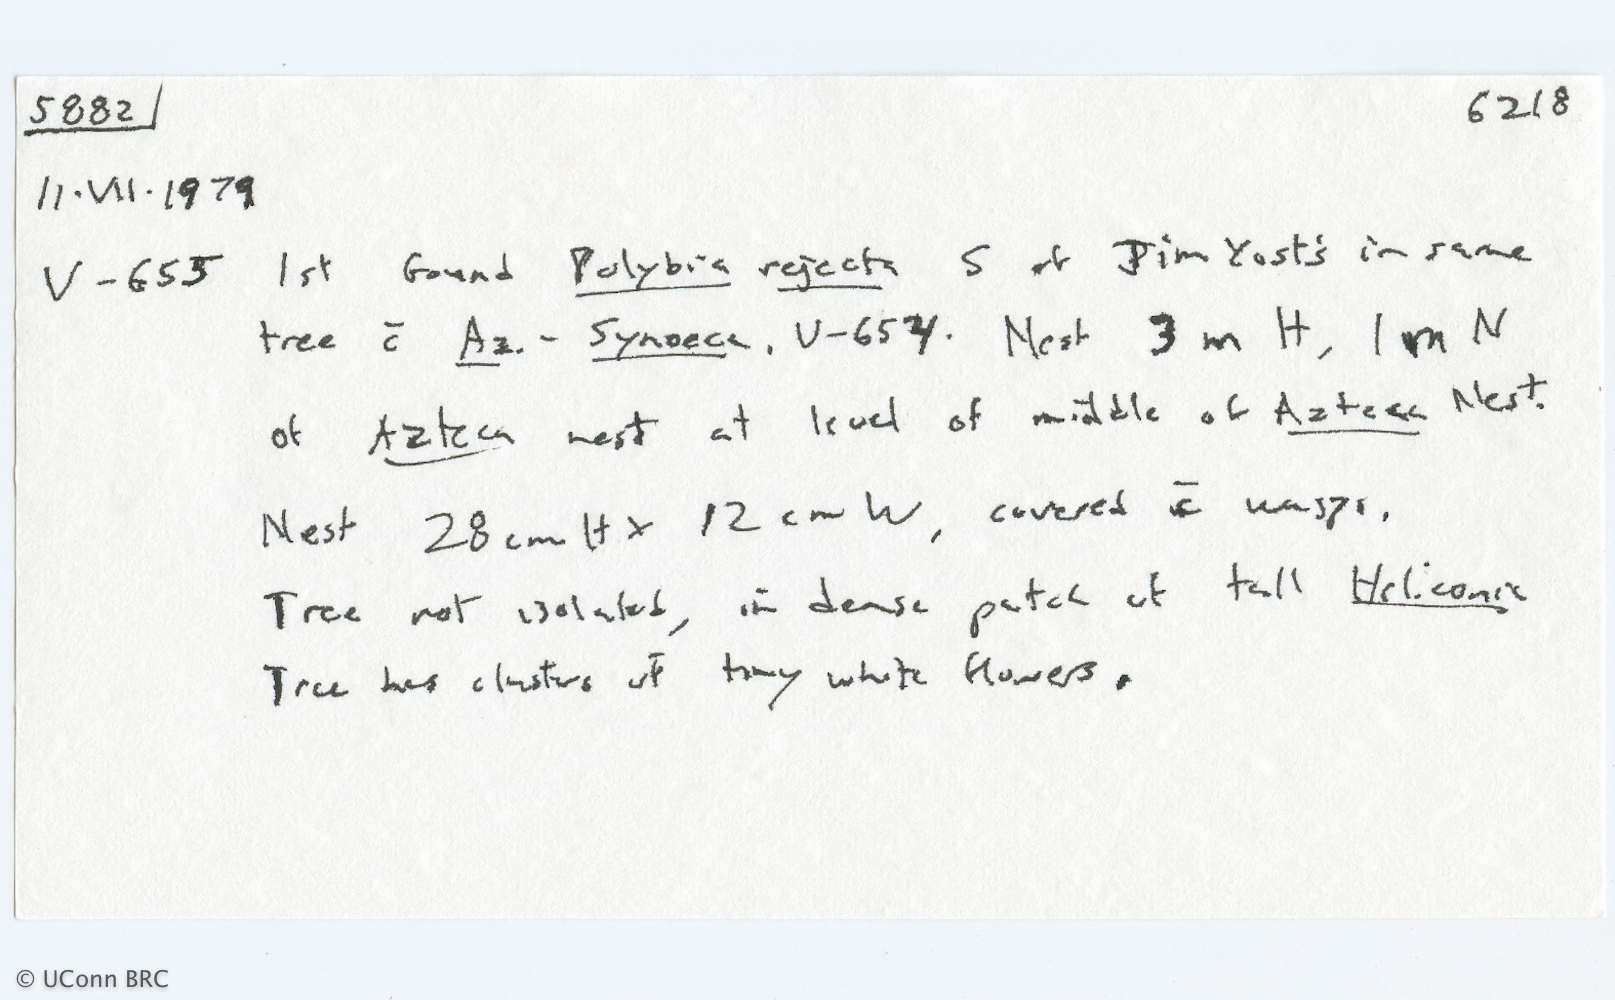 5882 6218
11.VII.1979
V-655 1st found Polybia rejecta S of Jim Yost's in same
tree c̄ Az. - Synoeca, V-654. Nest 3 m H, 1 m N
of Azteca nest at level of middle of Azteca Nest.
Nest 28 cm H x 12 cm W, covered c̄ wasps.
Tree not isolated, in dense patch of tall Heliconia
Tree has clusters of tiny white flowers.
© UConn BRC